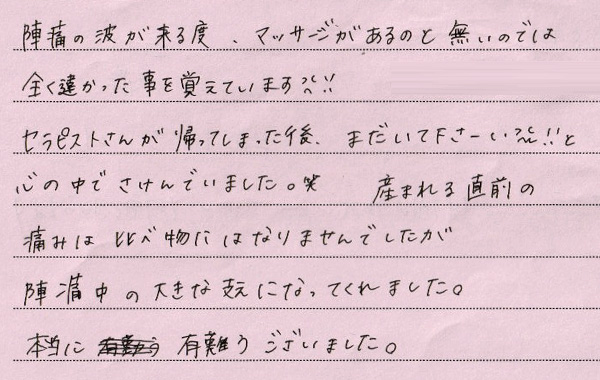 陣痛の波が来る度、マッサージがあるのと無いのでは
全く違かった事を覚えています!!
セラピストさんが帰ってしまった後、まだいて下さーい!!と
心の中でさけんでいました。笑 産まれる直前の
痛みは比べ物にはなりませんでしたが
陣痛中の大きな支えになってくれました。
本当に 有難う ございました。